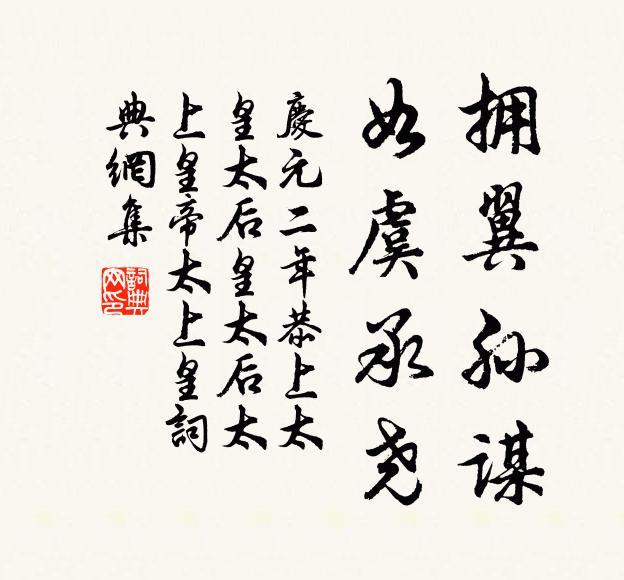 拥翼孙谋
如虞承尧
慶元二年恭上太
皇太后皇太后太
上皇帝太上皇詞
典網集
詞典網印